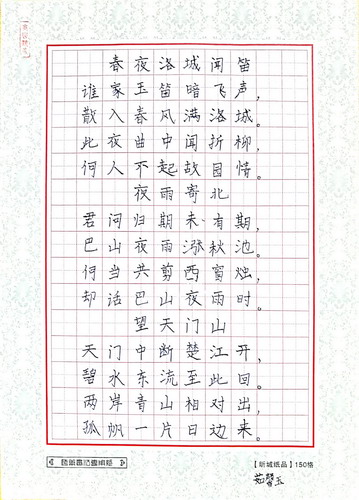 春夜洛城闻笛
谁家玉笛暗飞声，
散入春风满洛城。
此夜曲中闻折柳，
何人不起故园情。
夜雨寄北
君问归期未有期，
巴山夜雨涨秋池。
何当共剪西窗烛，
却话巴山夜雨时。
望天门山
天门中断楚江开，
碧水东流至此回。
两岸青山相对出，
孤帆一片日边来。
【昕城纸品】150格